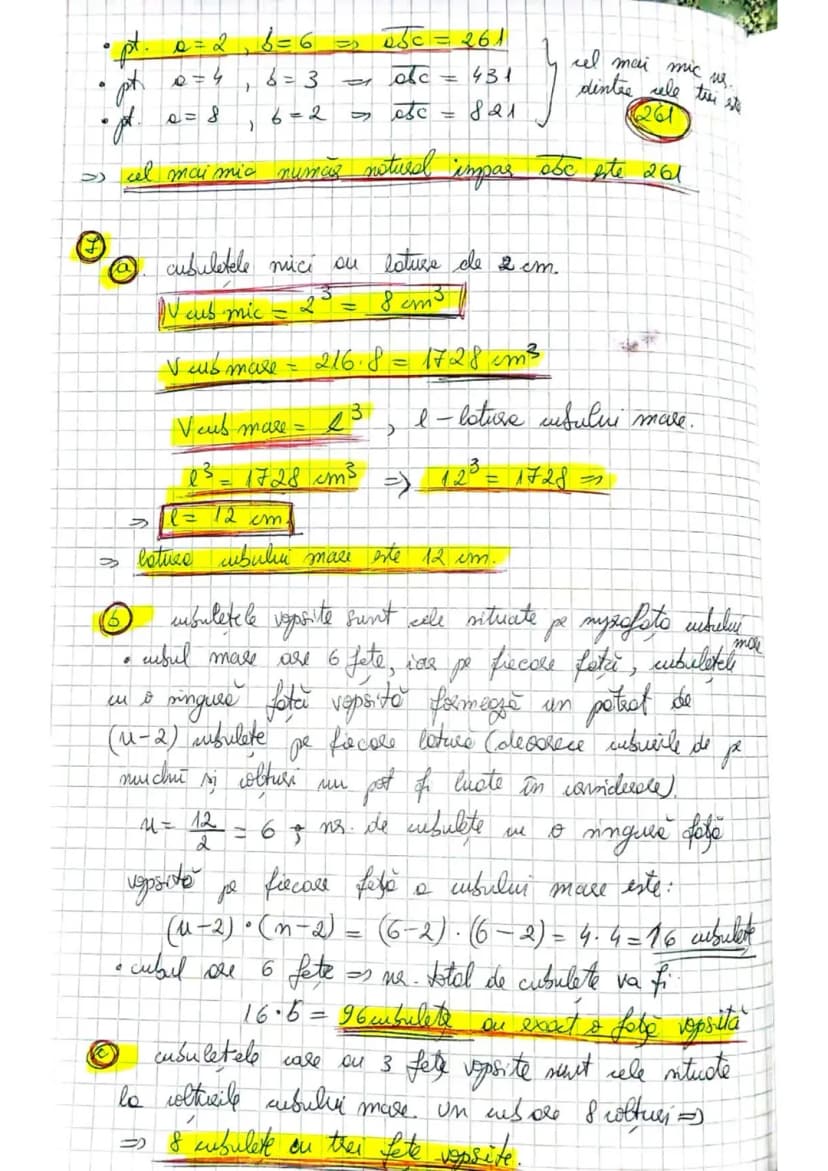 • pt. a=2, b=6 => abc = 261
• pt a=4, b=3 => abc = 431
• pt. a=8, b=2 => abc = 821
cel mai mic nr.
dintre cele trei este
261
=> cel mai mic număr natural impar abc este 261
7
a. cubulețele mici au latura de 2 cm.
V cub mic = 2³ = 8 cm³
V cub mare = 216·8 = 1728 cm³
V cub mare = l³, l - latura cubului mare.
l³ = 1728 cm³ => 12³ = 1728 =>
=> l = 12 cm
=> latura cubului mare este 12 cm.
b cubulețele vopsite sunt cele situate pe suprafața cubului mare
• cubul mare are 6 fețe, iar pe fiecare față, cubulețele
cu o singură față vopsită formează un pătrat de
(n-2) cubulețe pe fiecare latură (deoarece cuburile de pe
muchii și colțuri nu pot fi luate în considerare).
n = 12/2 = 6; nr. de cubulețe cu o singură față
vopsită pe fiecare față a cubului mare este:
(n-2)·(n-2) = (6-2)·(6-2) = 4·4 = 16 cubulețe
• cubul are 6 fețe => nr. total de cubulețe va fi
16·6 = 96 cubulețe au exact o față vopsită
c cubulețele care au 3 fețe vopsite sunt cele situate
la colțurile cubului mare. Un cub are 8 colțuri =>
=> 8 cubulețe au trei fețe vopsite.